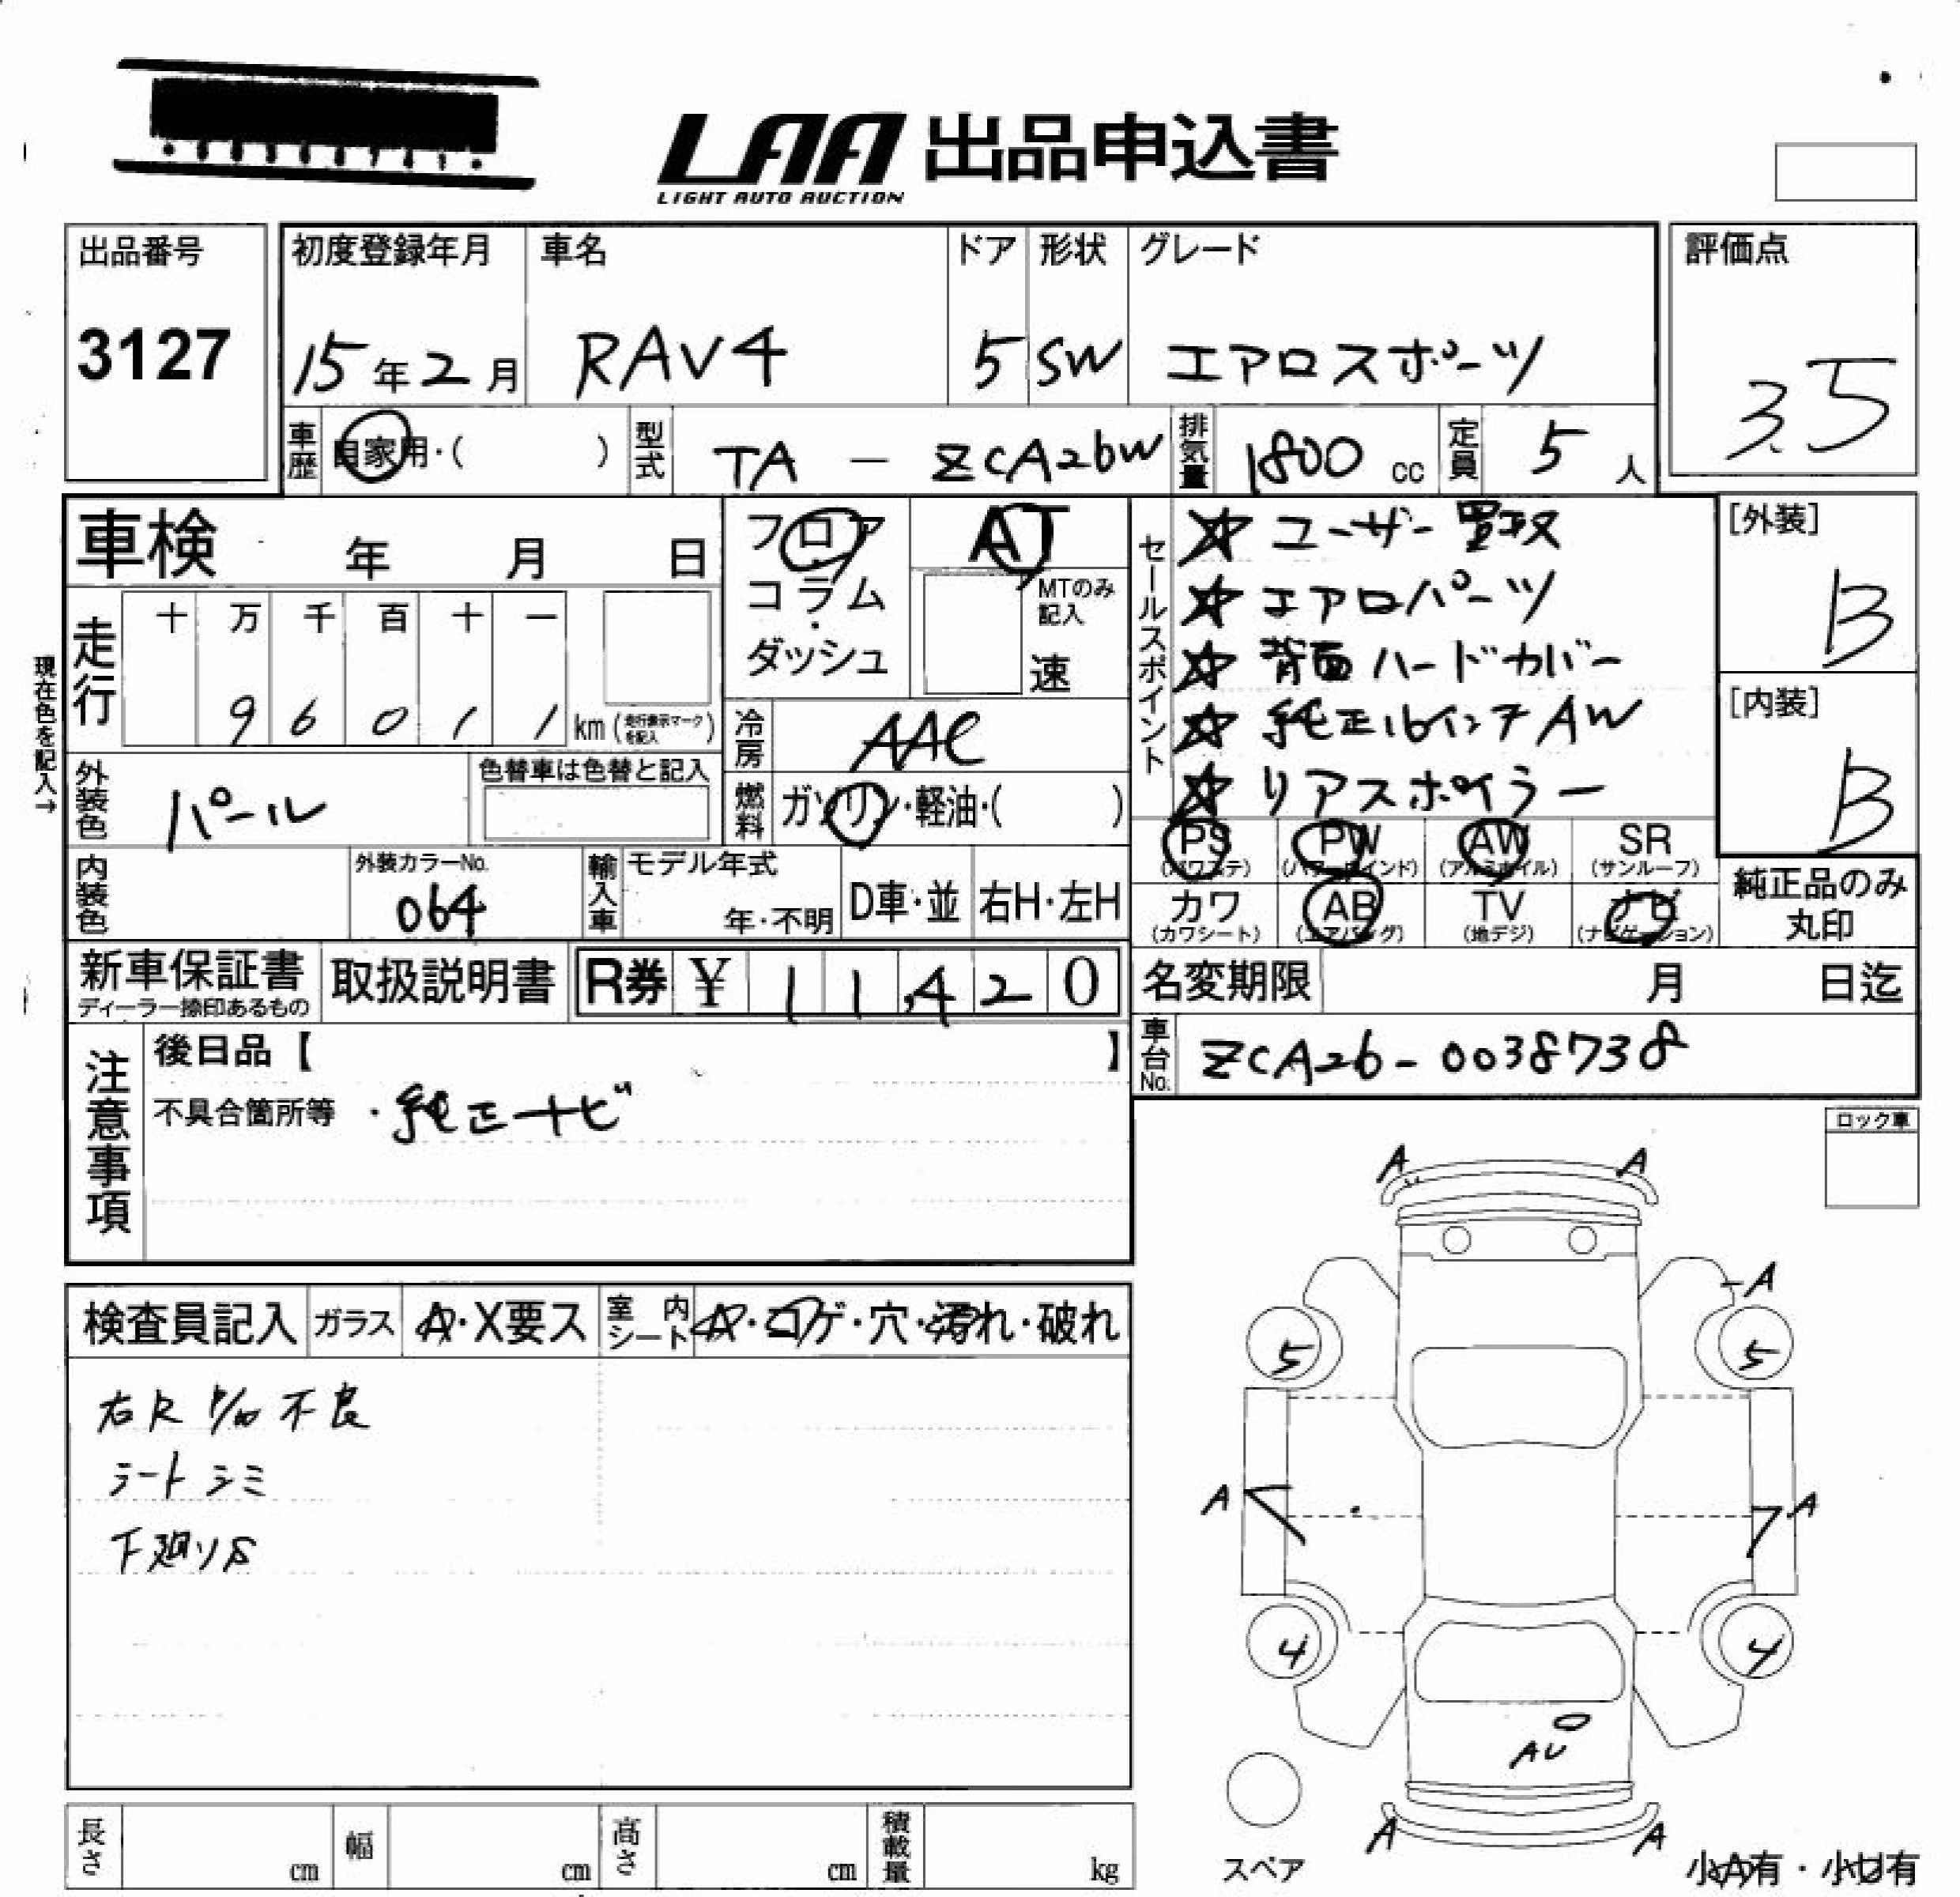 LAA 出品申込書
LIGHT AUTO AUCTION
出品番号
3127
初度登録年月 車名 ドア 形状 グレード
15年2月 RAV4 5 SW エアロスポーツ
評価点
3.5
車歴 自家用・( ) 型式 TA - ZCA26W 排気量 1800 cc 定員 5 人
車検 年 月 日
現在色を記入→
走行 十 万 千 百 十 一
9 6 0 1 1 km (走行表示マークを記入)
フロア
コラム
・
ダッシュ
AT
MTのみ
記入
速
冷房 AAC
燃料 ガソリン・軽油・( )
セールスポイント
☆ ユーザー買取
☆ エアロパーツ
☆ 背面ハードカバー
☆ 純正16インチAW
☆ リアスポイラー
[外装]
B
[内装]
B
外装色 パール
色替車は色替と記入
PS (パワステ) PW (パワーウインド) AW (アルミホイル) SR (サンルーフ)
カワ (カワシート) AB (エアバッグ) TV (地デジ) ナビ (ナビゲーション)
純正品のみ
丸印
内装色
外装カラーNo.
064
輸入車 モデル年式
年・不明 D車・並 右H・左H
新車保証書
ディーラー捺印あるもの
取扱説明書 R券 ¥ 11,420
名変期限 月 日迄
車台No. ZCA26-0038738
注意事項
後日品【 】
不具合箇所等 ・純正ナビ
ロック車
検査員記入 ガラス A・X要ス 室内シート A・コゲ・穴・汚れ・破れ
右R P/W 不良
シートシミ
下廻りS
A A
A
5 5
A A
4 4
AU
A A
スペア
小A有・小U有
長さ cm 幅 cm 高さ cm 積載量 kg